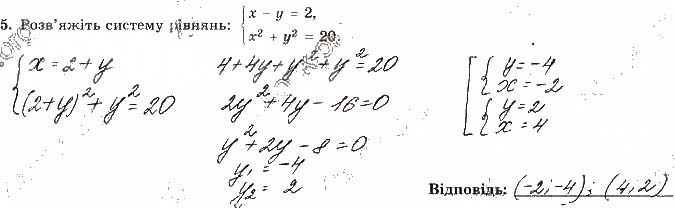 5. Розв'яжіть систему рівнянь: { x − y = 2,
x² + y² = 20.
{ x = 2 + y
(2+y)² + y² = 20
4 + 4y + y² + y² = 20
2y² + 4y − 16 = 0
y² + 2y − 8 = 0
y₁ = −4
y₂ = 2
[ { y = −4
x = −2
{ y = 2
x = 4
Відповідь: (−2; −4); (4; 2)